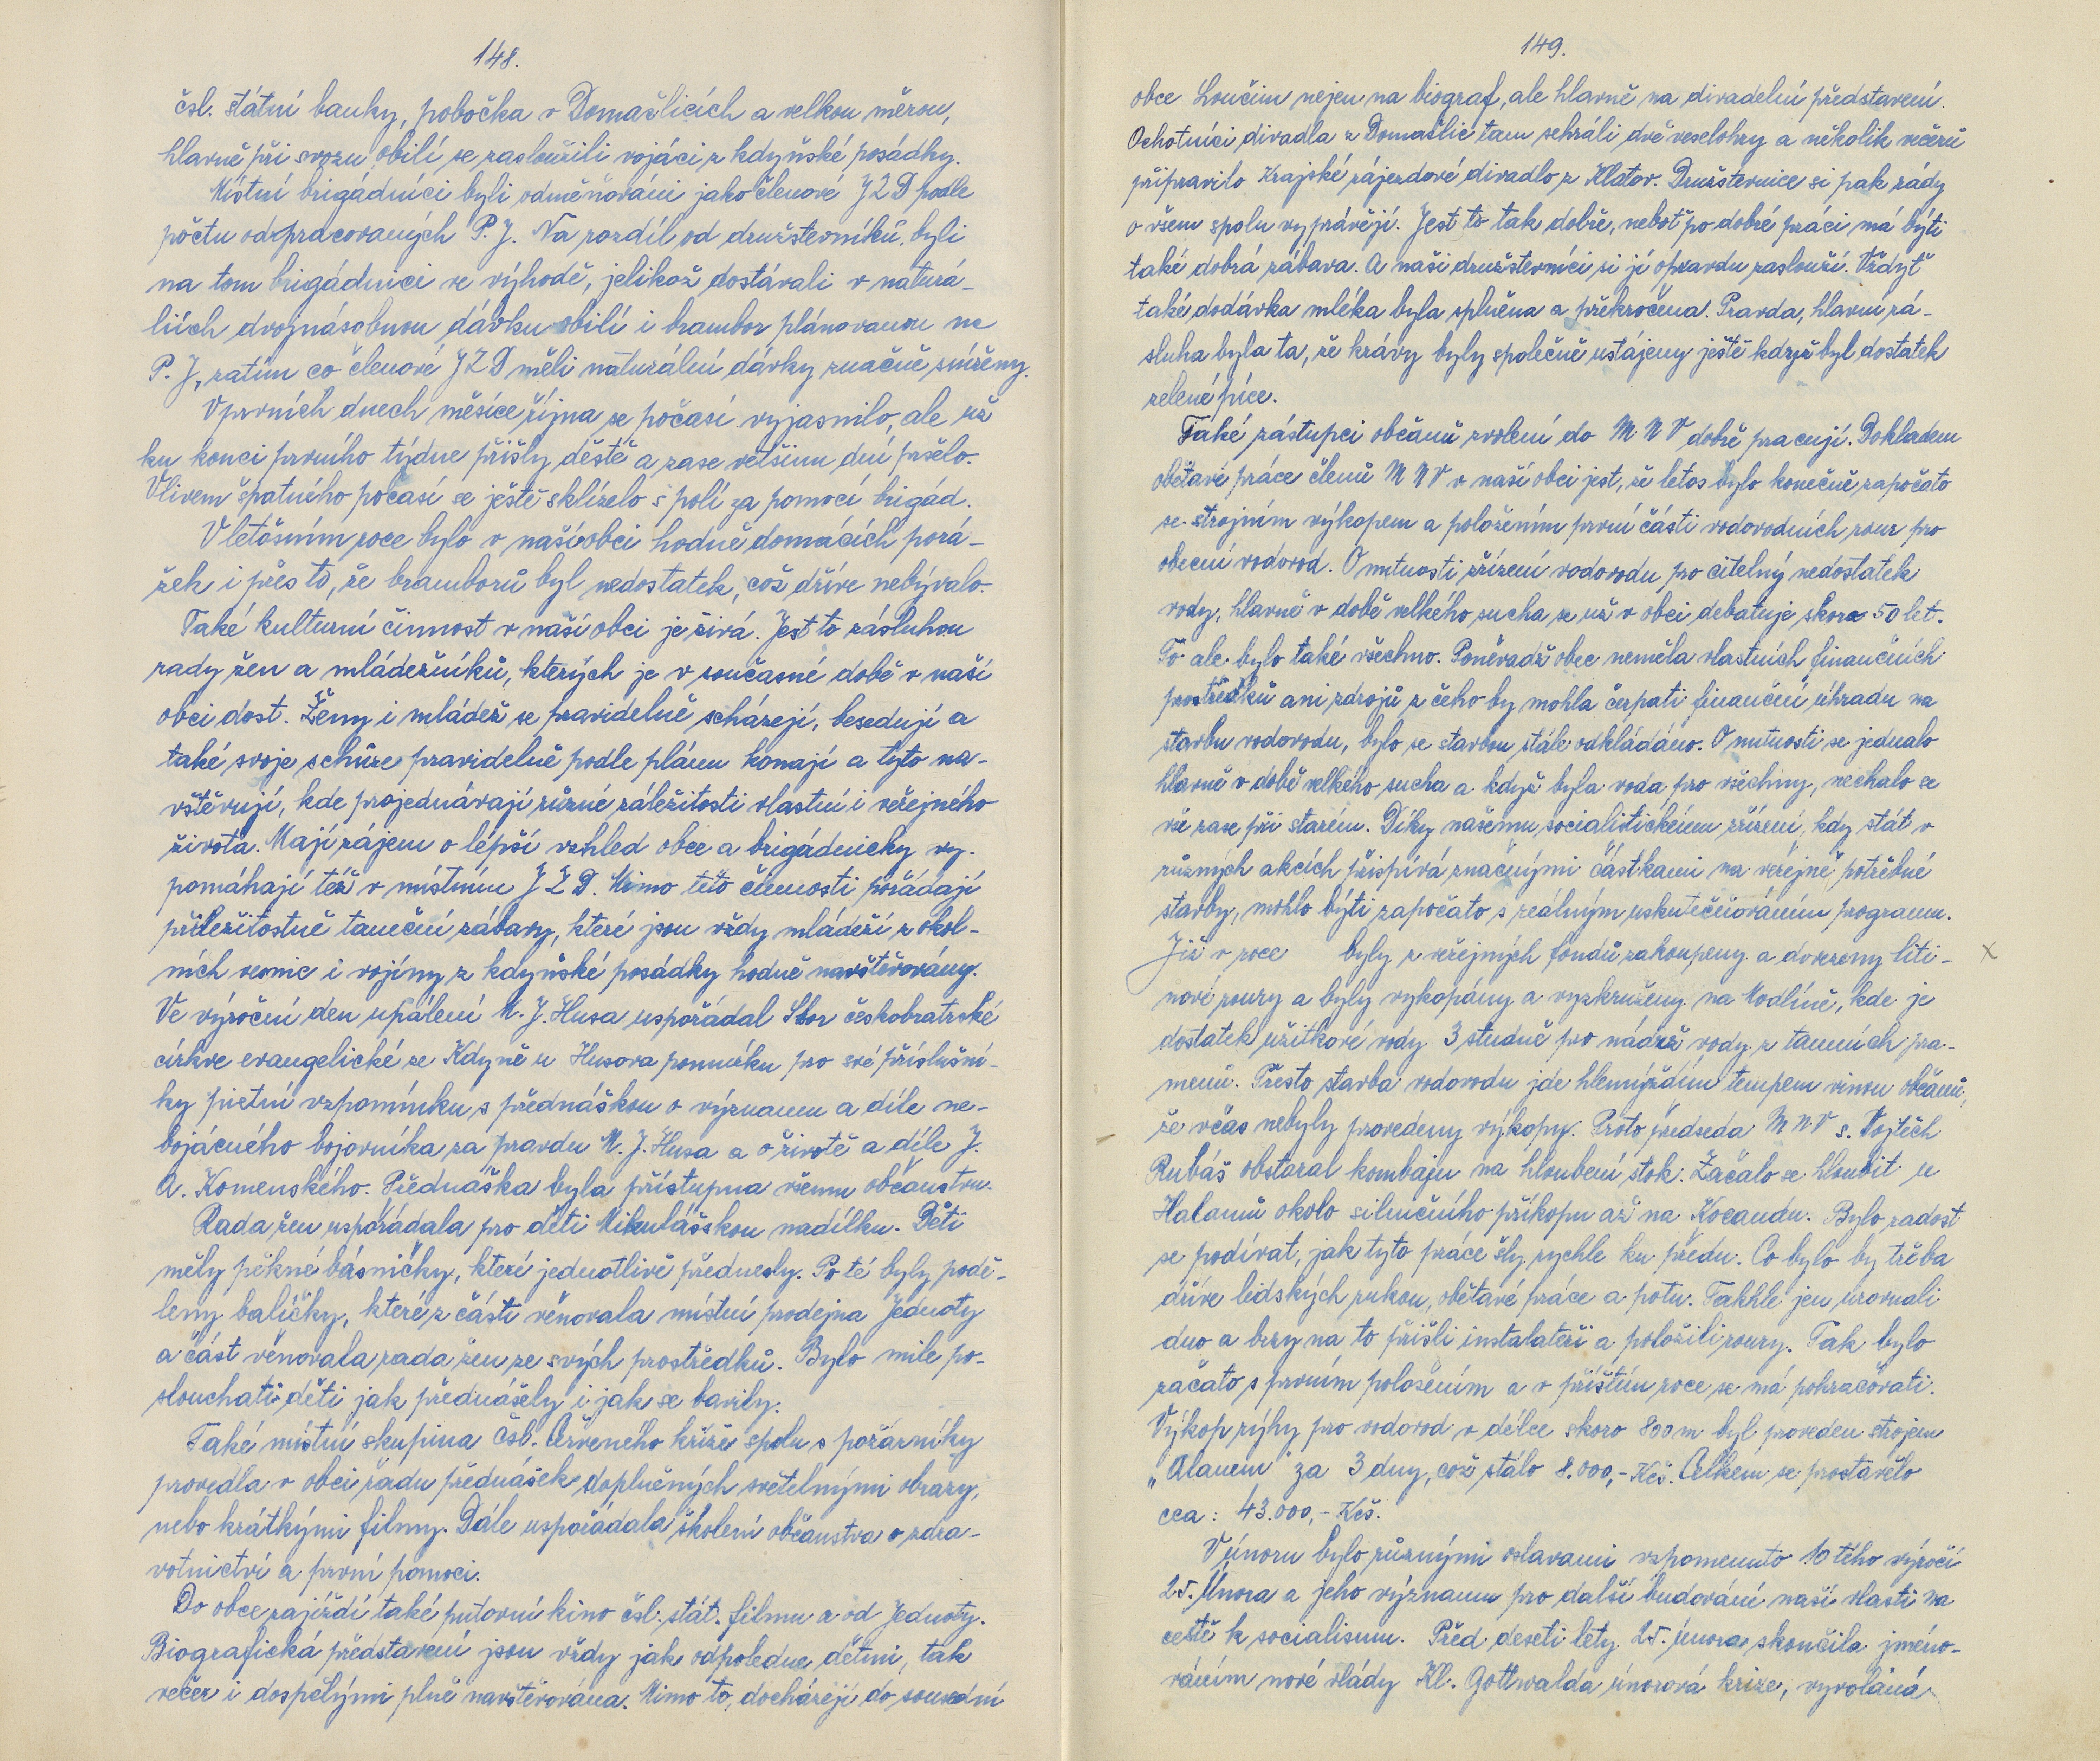 148.
čsl. státní banky, pobočka v Domažlicích a velkou měrou,
hlavně při svozu obilí se zasloužili vojáci z kdyňské posádky.
Místní brigádníci byli odměňováni jako členové JZD podle
počtu odpracovaných P. J. Na rozdíl od družstevníků, byli
na tom brigádnici ve výhodě, jelikož dostávali v naturá-
liích dvojnásobnou dávku obilí i brambor plánovanou na
P. J., zatím co členové JZD měli naturální dávky značně sníženy.
V prvních dnech měsíce října se počasí vyjasnilo, ale už
ku konci prvního týdne přišly deště a zase většinu dní pršelo.
Vlivem špatného počasí se ještě sklízelo s polí za pomocí brigád.
V letošním roce bylo v naší obci hodně domácích porá-
žek i přes to, že bramborů byl nedostatek, což dříve nebývalo.
Také kulturní činnost v naší obci je živá. Jest to zásluhou
rady žen a mládežníků, kterých je v současné době v naší
obci dost. Ženy i mládež se pravidelně scházejí, besedují a
také svoje schůze pravidelně podle plánu konají a tyto na-
vštěvují, kde projednávají různé záležitosti vlastní i veřejného
života. Mají zájem o lepší vzhled obce a brigádnicky vy-
pomáhají též v místním JZD. Mimo této činnosti pořádají
příležitostně taneční zábavy, které jsou vždy mládeží z okol-
ních vesnic i vojíny z kdyňské posádky hodně navštěvovány.
Ve výroční den upálení M. J. Husa uspořádal Sbor českobratrské
církve evangelické ze Kdyně u Husova pomníku pro své příslušní-
ky pietní vzpomínku s přednáškou o významu a díle ne-
bojácného bojovníka za pravdu M. J. Husa a o životě a díle J.
A. Komenského. Přednáška byla přístupna všemu občanstvu.
Rada žen uspořádala pro děti Mikulášskou nadílku. Děti
měly pěkné básničky, které jednotlivě přednesly. Po té byly podě-
leny balíčky, které z části věnovala místní prodejna Jednoty
a část věnovala rada žen ze svých prostředků. Bylo mile po-
slouchati děti jak přednášely i jak se bavily.
Také místní skupina Čsl. Červeného kříže spolu s požárníky
provedla v obci řadu přednášek doplněných světelnými obrazy,
nebo krátkými filmy. Dále uspořádala školení občanstva o zdra-
votnictví a první pomoci.
Do obce zajíždí také putovní kino čsl. stát. filmu a od Jednoty.
Biografická představení jsou vždy jak odpoledne dětmi, tak
večer i dospělými plně navštěvována. Mimo to, docházejí do sousední
149.
obce Loučim nejen na biograf, ale hlavně na divadelní představení.
Ochotníci divadla z Domažlic tam sehráli dvě veselohry a několik večerů
připravilo Krajské zájezdové divadlo z Klatov. Družstevnice si pak rády
o všem spolu vyprávějí. Jest to tak dobře, neboť po dobré práci má býti
také dobrá zábava. A naši družstevníci si jí opravdu zaslouží. Vždyť
také dodávka mléka byla splněna a překročena. Pravda, hlavní zá-
sluha byla ta, že krávy byly společně ustájeny ještě když byl dostatek
zelené píce.
Také zástupci občanů zvolení do MNV dobře pracují. Dokladem
obětavé práce členů MNV v naší obci jest, že letos bylo konečně započato
se strojním výkopem a položením první části vodovodních rour pro
obecní vodovod. O nutnosti zřízení vodovodu pro citelný nedostatek
vody, hlavně v době velkého sucha se už v obci debatuje skoro 50 let.
To ale bylo také všechno. Poněvadž obec neměla vlastních finančních
prostředků ani zdrojů z čeho by mohla čerpati finanční úhradu na
stavbu vodovodu, bylo se stavbou stále odkládáno. O nutnosti se jednalo
hlavně v době velkého sucha a když byla voda pro všechny, nechalo se
vše zase při starém. Díky našemu socialistickému zřízení, kdy stát v
různých akcích přispívá značnými částkami na veřejně potřebné
stavby, mohlo býti započato s reálným uskutečňováním programu.
Již v roce byly z veřejných fondů zakoupeny a dovezeny liti- x
nové roury a byly vykopány a vyzkruženy na Modlíně, kde je
dostatek užitkové vody 3 studně pro nádrž vody z tamních pra-
menů. Přesto stavba vodovodu jde hlemýždím tempem vinou občanů,
že včas nebyly provedeny výkopy. Proto předseda MNV s. Vojtěch
Rubáš obstaral kombajn na hloubení stok. Začalo se hloubit u
Halamů okolo silničního příkopu až na Kocandu. Bylo radost
se podívat, jak tyto práce šly rychle ku předu. Co bylo by třeba
dříve lidských rukou, obětavé práce a potu. Takhle jen urovnali
dno a brzy na to přišli instalateři a položili roury. Tak bylo
začato s prvním položením a v příštím roce se má pokračovati.
Výkop rýhy pro vodovod v délce skoro 800 m byl proveden strojem
„Alanem" za 3 dny, což stálo 8.000,- Kčs. Celkem se prostavělo
cca: 43.000,- Kčs.
V únoru bylo různými oslavami vzpomenuto 10 tého výročí
25. Února a jeho významu pro další budování naší vlasti na
cestě k socialismu. Před deseti lety 25. února skončila jmeno-
váním nové vlády Kl. Gottwalda únorová krize, vyvolaná